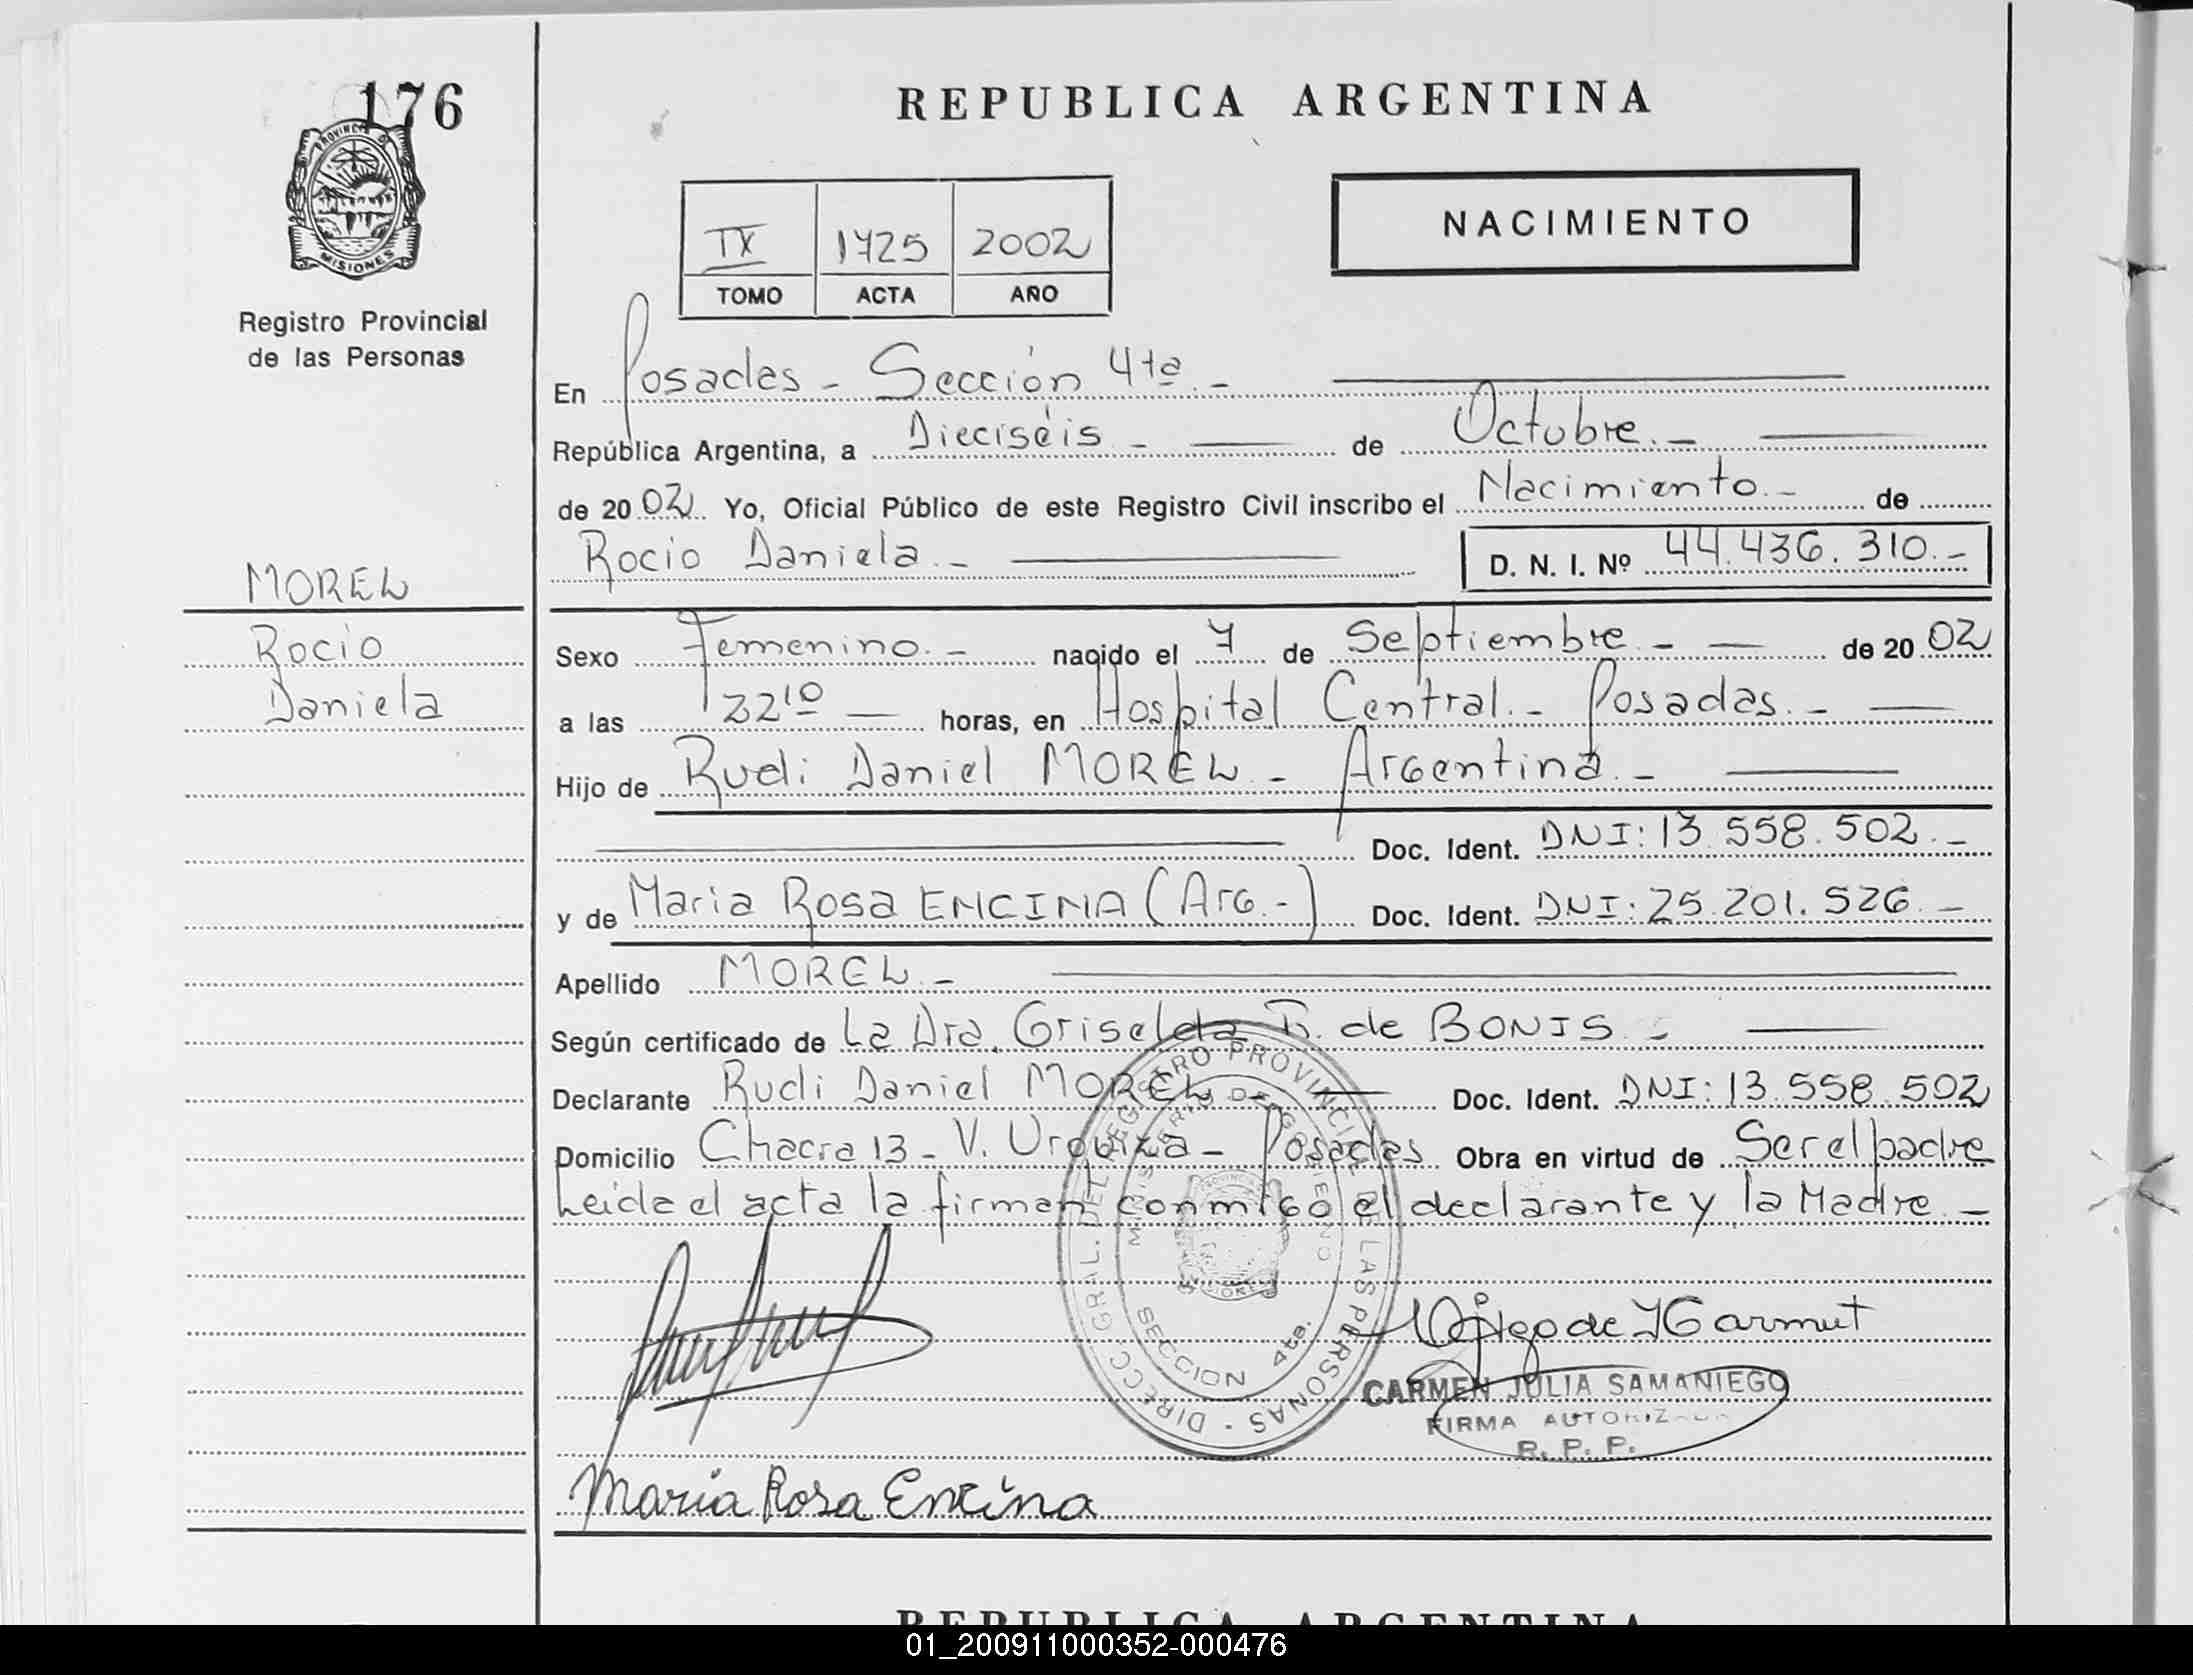 176
REPUBLICA ARGENTINA
PROVINCIA DE
MISIONES
Registro Provincial
de las Personas
NACIMIENTO
IX 1725 2002
TOMO ACTA AÑO
En Posadas - Sección 4ta. -
República Argentina, a Dieciséis. - de Octubre. -
de 2002. Yo, Oficial Público de este Registro Civil inscribo el Nacimiento. - de
Rocio Daniela. - D. N. I. Nº 44.436.310. -
MOREL
Rocio
Daniela
Sexo Femenino. - nacido el 7 de Septiembre. - de 2002
a las 22¹⁰ horas, en Hospital Central. - Posadas. -
Hijo de Rudi Daniel MOREL - Argentina. -
Doc. Ident. DNI: 13.558.502. -
y de Maria Rosa ENCINA (Arg. -) Doc. Ident. DNI: 25.201.526. -
Apellido MOREL. -
Según certificado de La Dra. Griselda B. de BONIS. -
Declarante Rudi Daniel MOREL - Doc. Ident. DNI: 13.558.502
Domicilio Chacra 13 - V. Urquiza - Posadas Obra en virtud de Ser el padre
Leida el acta la firman conmigo el declarante y la Madre. -
DIRECC. GRAL. DEL REGISTRO PROVINCIAL DE LAS PERSONAS -
MINISTERIO DE GOBIERNO
SECCION 4ta.
CARMEN JULIA SAMANIEGO
FIRMA AUTORIZADA
R. P. P.
Maria Rosa Encina
REPUBLICA ARGENTINA
01_200911000352-000476